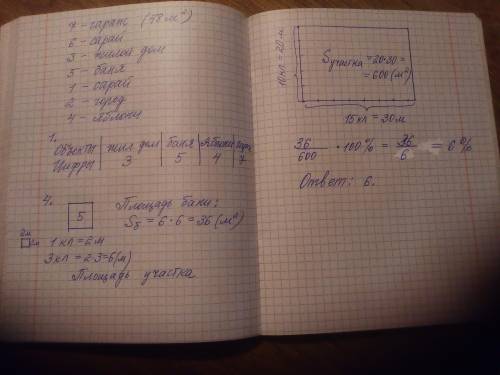 7 - гараж (58 м²)
6 - сарай
3 - жилой дом
5 - баня
1 - сарай
2 - город
4 - яблони
1.
Объекты | жил. дом | баня | Яблони |
Цифры | 3 | 5 | 4 | 7
4.
5
Площадь бани:
Sб = 6 · 6 = 36 (м²)
2м
2м
1 кл = 2 м
3 кл = 2·3=6(м)
Площадь участка
10кл = 20м
Sучастка = 20·30 =
= 600 (м²)
15кл = 30м
36/600 · 100% = 36/6 = 6%
Ответ: 6.